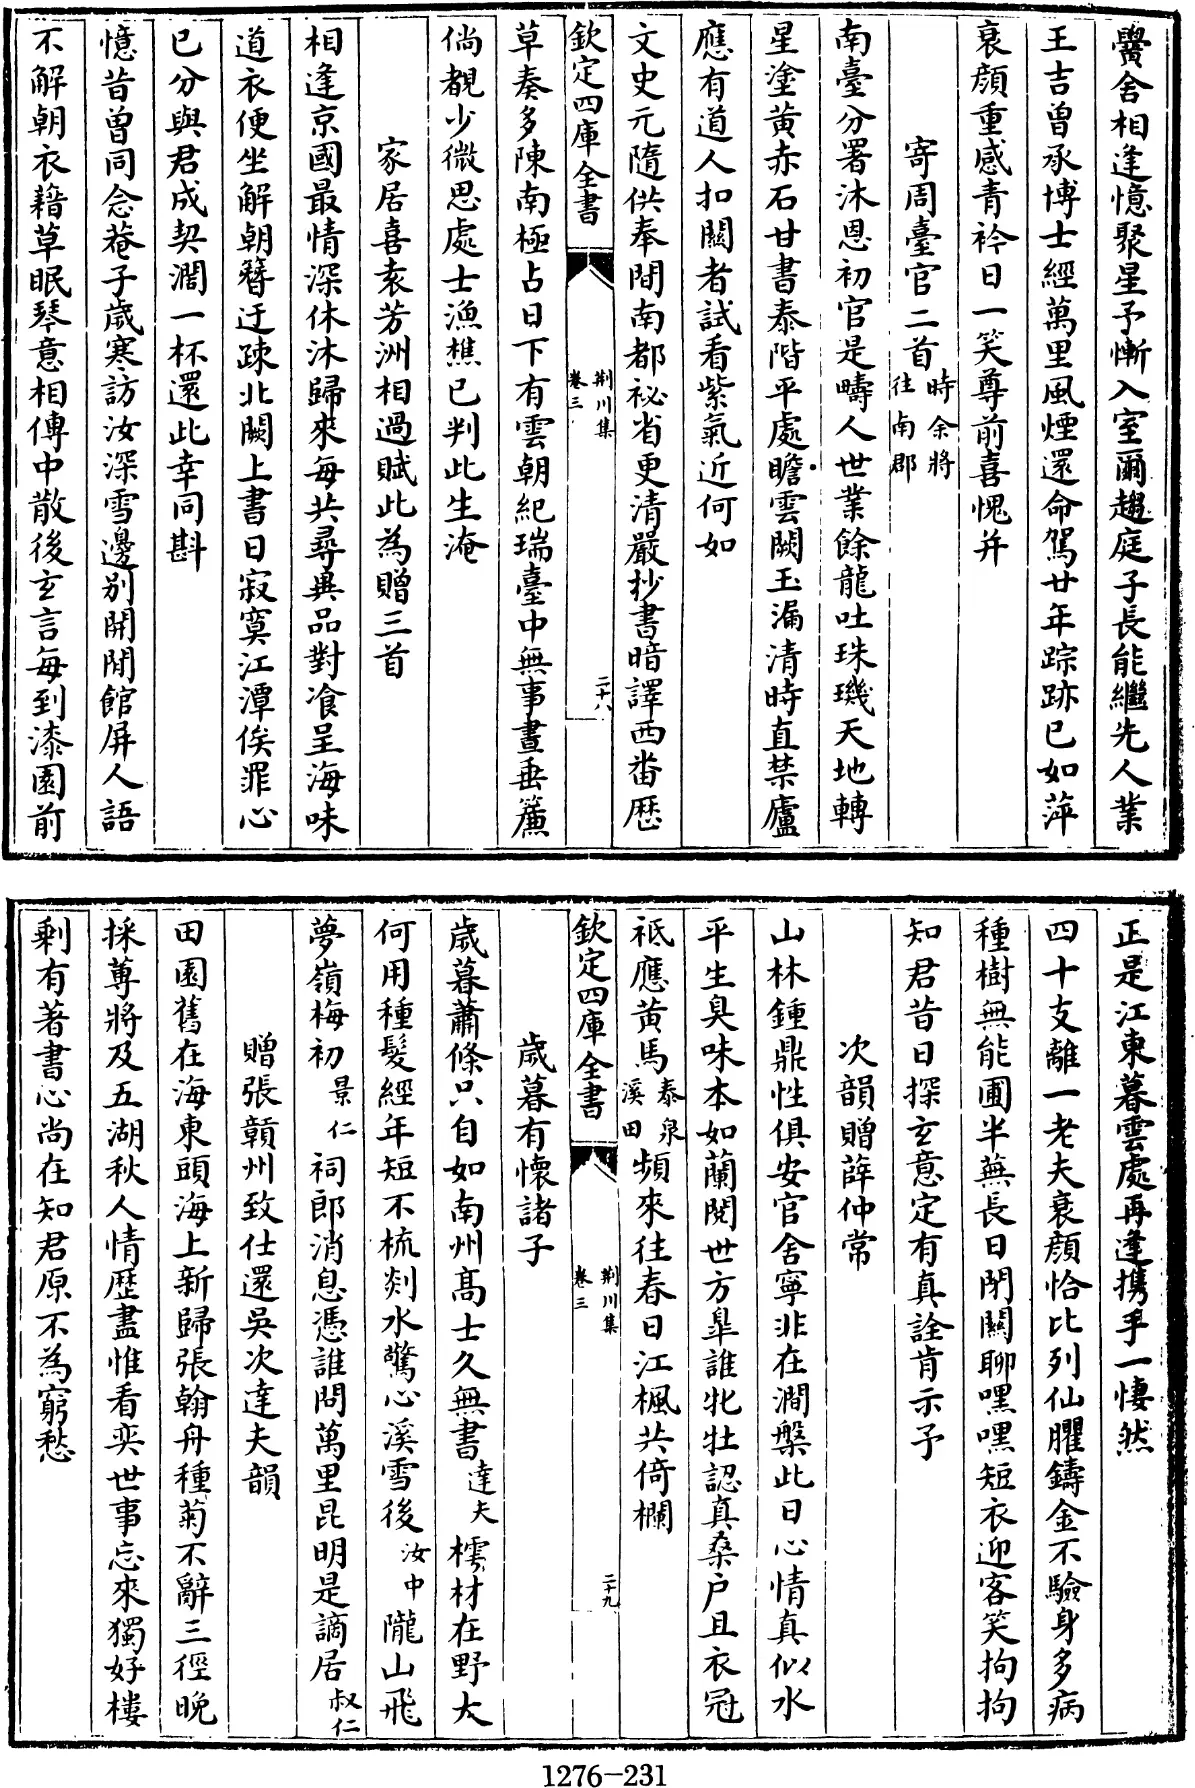 黌舍相逢憶聚星予慚入室爾趨庭子長能繼先人業
王吉曽承博士經萬里風煙還命駕廿年踪跡已如萍
衰顔重感青衿日一笑尊前喜愧并
寄周臺官二首時余將往南郡
南臺分署沐恩初官是疇人世業餘龍吐珠璣天地轉
星塗黄赤石甘書泰階平處瞻雲闕玉漏清時直禁廬
應有道人扣關者試看紫氣近何如
文史元隨供奉間南都祕省更清嚴抄書暗譯西畨歴
欽定四庫全書
荆川集
卷三
二十八
草奏多陳南極占日下有雲朝紀瑞臺中無事晝垂簾
倘覩少微思處士漁樵已判此生淹
家居喜袁芳洲相過賦此為贈三首
相逢京國最情深休沐歸來每共尋輿品對飡呈海味
道衣便坐解朝簪迂疎北闕上書日寂寞江潭俟罪心
已分與君成契濶一杯還此幸同斟
憶昔曾同念菴子歳寒訪汝深雪邊别開閒館屏人語
不解朝衣藉草眠琴意相傳中散後玄言每到漆園前
正是江東暮雲處再逢携手一悽然
四十支離一老夫衰顔恰比列仙臞鑄金不驗身多病
種樹無能圃半蕪長日閉關聊嘿嘿短衣迎客笑拘拘
知君昔日探玄意定有真詮肯示予
次韻贈薛仲常
山林鍾鼎性俱安官舍寧非在澗槃此日心情真似水
平生臭味本如蘭閱世方臯誰牝牡認真桑户且衣冠
祗應黄馬泰泉溪田頻來往春日江楓共倚欄
欽定四庫全書
荆川集
卷三
二十九
歳暮有懷諸子
歳暮蕭條只自如南州髙士久無書達夫樗材在野大
何用種髮經年短不梳剡水驚心溪雪後汝中隴山飛
夢嶺梅初景仁祠郎消息憑誰問萬里昆明是謫居叔仁
贈張贑州致仕還吳次達夫韻
田園舊在海東頭海上新歸張翰舟種菊不辭三徑晚
採蓴將及五湖秋人情歴盡惟看奕世事忘來獨好樓
剰有著書心尚在知君原不為窮愁
1276-231